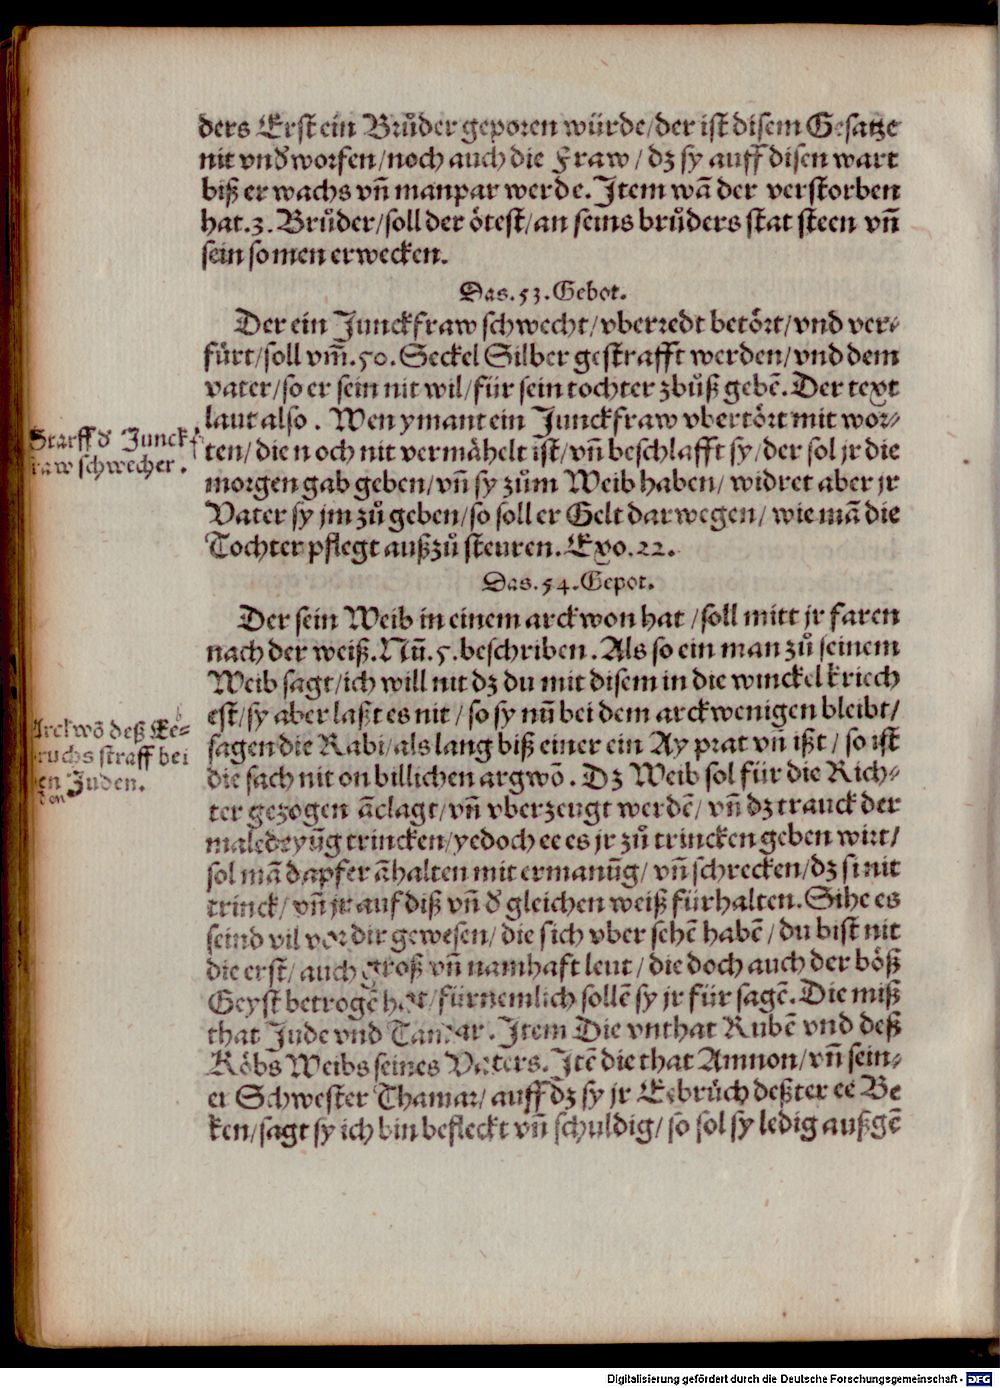 ders Erst ein Bruͦder geporen würde/der ist disem Gesatze
nit vnđworfen/noch auch die Fraw/dz sy auff disen wart
biß er wachs vñ manpar werde. Item wã der verstorben
hat.3.Bruͦder/soll der ötest/an seins bruͦders stat steen vñ
sein somen erwecken.
Das.53.Gebot.
Der ein Junckfraw schwecht/vberredt betört/vnd ver-
fürt/soll vm̃.50.Seckel Silber gestrafft werden/vnd dem
vater/so er sein nit wil/für sein tochter zbuͦß gebẽ. Der text
laut also. Wen ymant ein Junckfraw vbertört mit wor-
Starff đ Junckf
raw schwecher.
ten/die noch nit vermähelt ist/vñ beschlafft sy/der sol jr die
morgengab geben/vñ sy zuͦm Weib haben/widret aber jr
Vater sy jm zuͦ geben/so soll er Gelt darwegen/wie mã die
Tochter pflegt außzuͦ steuren. Exo.22.
Das.54.Gepot.
Der sein Weib in einem arckwon hat/soll mitt jr faren
nach der weiß.Nũ.5.beschriben. Als so ein man zuͦ seinem
Weib sagt/ich will nit dz du mit disem in die winckel kriech
est/sy aber laßt es nit/so sy nũ bei dem arckwenigen bleibt/
Arckwõ deß Ee-
bruchs straff bei
den Juden.
sagen die Rabi/als lang biß einer ein Ay prat vñ ißt/so ist
die sach nit on billichen argwõ. Dz Weib sol für die Rich-
ter gezogen ãclagt/vñ vberzeugt werdẽ/vñ dz tranck der
maledeyũg trincken/yedoch ee es jr zuͦ trincken geben wirt/
sol mã dapfer ãhalten mit ermanũg/vñ schrecken/dz si nit
trinck/vñ jr auf diß vñ đgleichen weiß fürhalten. Sihe es
seind vil vor dir gewesen/die sich vber sehẽ habẽ/du bist nit
die erst/auch groß vñ namhaft leut/die doch auch der böß
Geyst betrogẽ hat/fürnemlich sollẽ sy jr für sagẽ. Die miß
that Jude vnd Tamar. Item Die vnthat Rubẽ vnd deß
Köbs Weibs seines Vaters. Itẽ die that Amnon/vñ sein-
er Schwester Thamar/auff dz sy jr Eebruͦch deßter ee Be
ken/sagt sy ich bin befleckt vñ schuldig/so sol sy ledig außgẽ
Digitalisierung gefördert durch die Deutsche Forschungsgemeinschaft - DFG